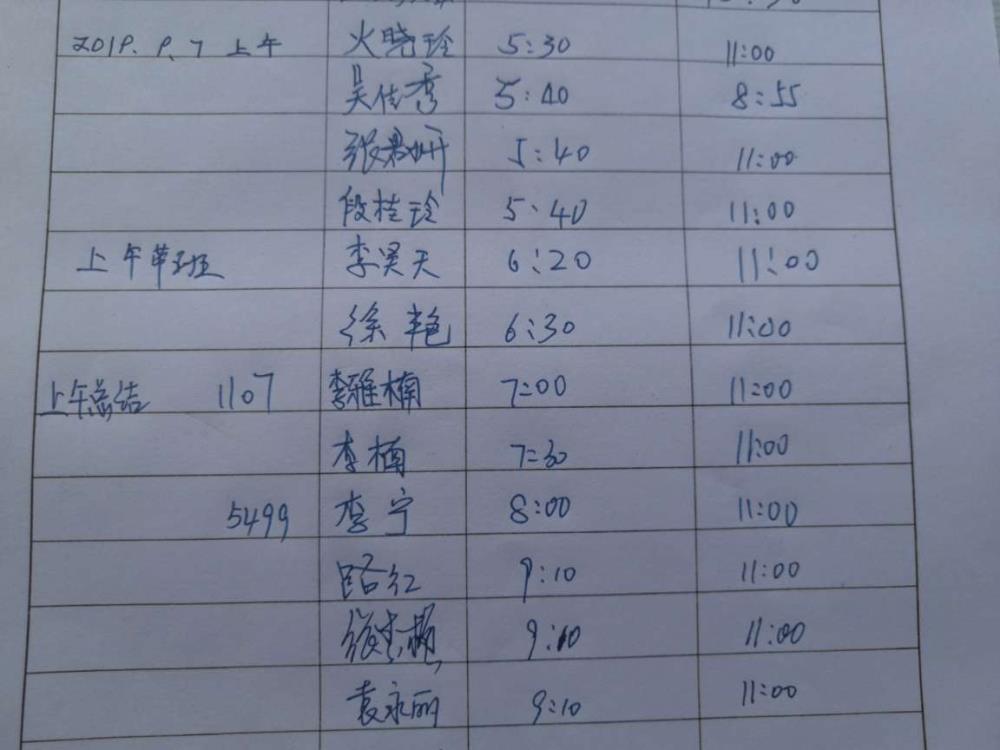 2019.9.7 上午 火晓玲 5:30 11:00
吴佳秀 5:40 8:55
张 5:40 11:00
段桂玲 5:40 11:00
上午单班 李昊天 6:20 11:00
徐艳 6:30 11:00
上午总结 1107 李雅楠 7:00 11:00
李楠 7:30 11:00
5499 李宁 8:00 11:00
路红 9:10 11:00
9:10 11:00
袁永丽 9:10 11:00